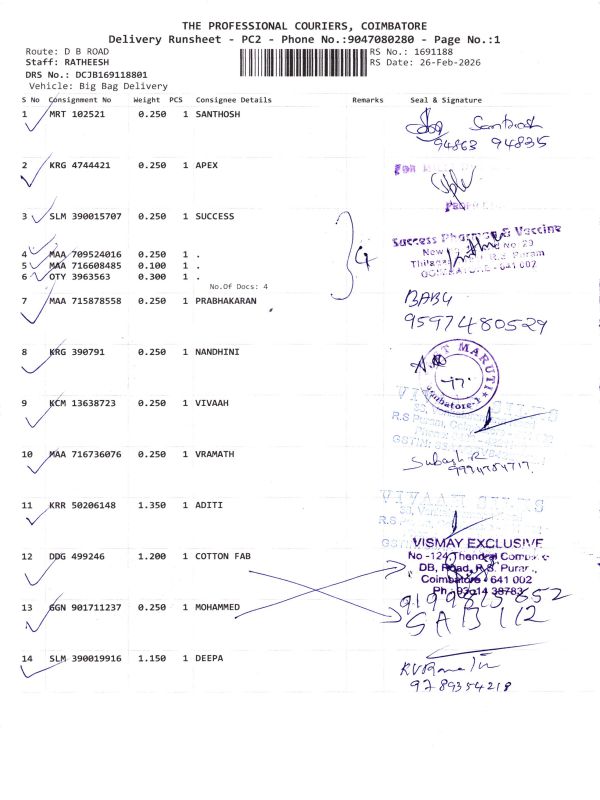 THE PROFESSIONAL COURIERS, COIMBATORE
Delivery Runsheet - PC2 - Phone No.:9047080280 - Page No.:1
Route: D B ROAD RS No.: 1691188
Staff: RATHEESH RS Date: 26-Feb-2026
DRS No.: DCJB169118801
Vehicle: Big Bag Delivery
S No Consignment No Weight PCS Consignee Details Remarks Seal & Signature
1 MRT 102521 0.250 1 SANTHOSH Santhosh
94863 94835
2 KRG 4744421 0.250 1 APEX FOR
3 SLM 390015707 0.250 1 SUCCESS Success Pharma & Vaccine
4 MAA 709524016 0.250 1 . No 29
5 MAA 716608485 0.100 1 . R.S. Puram
6 OTY 3963563 0.300 1 . COIMBATORE - 641 002
No.Of Docs: 4
4
7 MAA 715878558 0.250 1 PRABHAKARAN BABU
9597480529
8 KRG 390791 0.250 1 NANDHINI MARUTI
Coimbatore-1
9 KCM 13638723 0.250 1 VIVAAH
R.S Puram,
10 MAA 716736076 0.250 1 VRAMATH Subash R
11 KRR 50206148 1.350 1 ADITI VIVAAH SILKS
12 DDG 499246 1.200 1 COTTON FAB VISMAY EXCLUSIVE
No -124, Thendral Complex
DB, Road, R.S. Puram,
Coimbatore - 641 002
13 GGN 901711237 0.250 1 MOHAMMED
14 SLM 390019916 1.150 1 DEEPA
9789354218